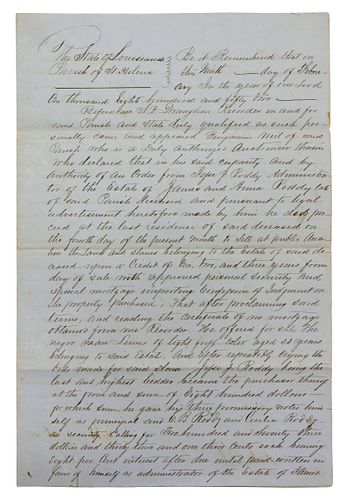 The State of Louisiana
Parish of St Helena
Be it Remembered that on
this Ninth day of Febru
ary In the year of our Lord
On thousand Eight hundred and fifty two
Before me S. D. Draughon Recorder in and for
said Parish and State duly qualified as such per
sonally came and appeared Benjamin Weil of said
Parish who is a Duly Authorized Auctioneer therein
who declared that in his said capacity and by
Authority of An Order from Jesse J. Roddy Administra
tor of the Estate of James and Anna Roddy late
of said Parish deceased and pursuant to legal
advertisement heretofore made by him he did pro
ceed at the last residence of said deceased on
the fourth day of the present Month to sell at public Auc
tion the Land and slaves belonging to the Estate of said de
ceased upon a Credit of One, two, and three years from
day of sale with approved personal security and
special mortgage importing Confession of Judgment on
the property purchased, That after proclaiming said
terms, and reading the Certificate of mortgage
obtained from me Recorder He offered for sale The
negro man of color aged 33 years
belonging to said Estate. And after repeatedly crying the
bids made for said Jesse J. Roddy being the
last and highest bidder became the purchaser thereof
at the price and sum of Eight hundred dollars
for which sum he gave his three promissory notes himself
as principal and C. B. Roddy and Roddy
as security Calling for Two hundred and seventy three
dollars and thirty three and one third Cents each bearing
Eight per Cent interest after due until paid written in
favor of himself as administrator of the Estate of James